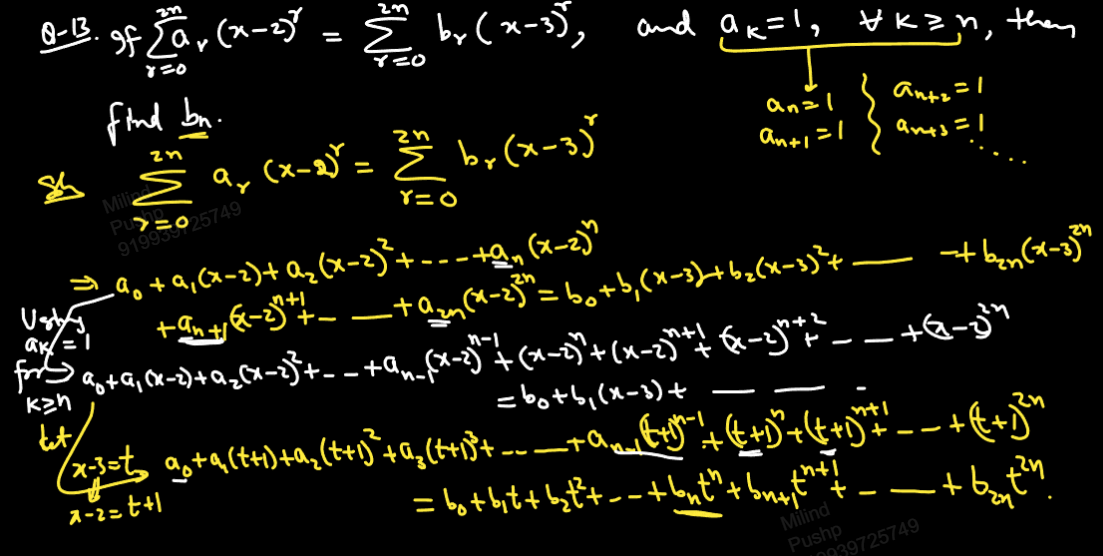 Q-13. If ∑_{r=0}^{2n} a_r (x-2)^r = ∑_{r=0}^{2n} b_r (x-3)^r, and a_k=1, ∀ k ≥ n, then
find b_n.
a_n=1 } a_{n+2}=1
a_{n+1}=1 } a_{n+3}=1 .....
Sol ∑_{r=0}^{2n} a_r (x-2)^r = ∑_{r=0}^{2n} b_r (x-3)^r
⇒ a_0 + a_1(x-2) + a_2(x-2)^2 + ---- + a_n(x-2)^n
+ a_{n+1}(x-2)^{n+1} + - — + a_{2n}(x-2)^{2n} = b_0 + b_1(x-3) + b_2(x-3)^2 + — + b_{2n}(x-3)^{2n}
Using
a_k = 1
for
k≥n
⇒ a_0 + a_1(x-2) + a_2(x-2)^2 + -- + a_{n-1}(x-2)^{n-1} + (x-2)^n + (x-2)^{n+1} + (x-2)^{n+2} + - — + (x-2)^{2n}
= b_0 + b_1(x-3) + — — -
let
x-3=t
x-2=t+1
a_0 + a_1(t+1) + a_2(t+1)^2 + a_3(t+1)^3 + -- — + a_{n-1}(t+1)^{n-1} + (t+1)^n + (t+1)^{n+1} + -- — + (t+1)^{2n}
= b_0 + b_1t + b_2t^2 + -- + b_nt^n + b_{n+1}t^{n+1} + - — + b_{2n}t^{2n}.
Milind
Pushp
919939725749
Milind
Pushp
9939725749